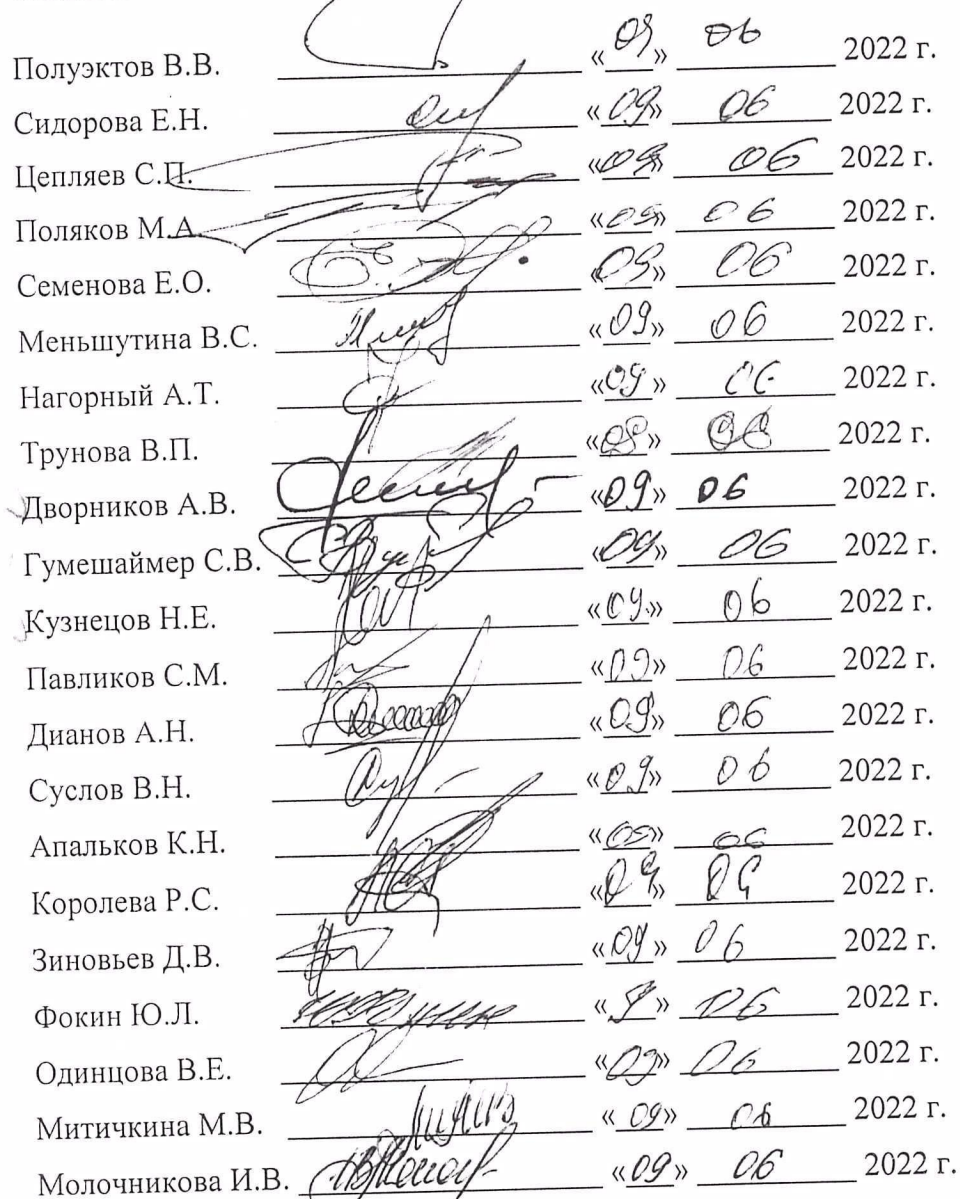 Полуэктов В.В. «09» 06 2022 г.
Сидорова Е.Н. «09» 06 2022 г.
Цепляев С.П. «09» 06 2022 г.
Поляков М.А. «09» 06 2022 г.
Семенова Е.О. «09» 06 2022 г.
Меньшутина В.С. «09» 06 2022 г.
Нагорный А.Т. «09» 06 2022 г.
Трунова В.П. 2022 г.
Дворников А.В. «09» 06 2022 г.
Гумешаймер С.В. «09» 06 2022 г.
Кузнецов Н.Е. «09» 06 2022 г.
Павликов С.М. «09» 06 2022 г.
Дианов А.Н. «09» 06 2022 г.
Суслов В.Н. «09» 06 2022 г.
Апальков К.Н. «09» 06 2022 г.
Королева Р.С. «09» 2022 г.
Зиновьев Д.В. «09» 06 2022 г.
Фокин Ю.Л. «9» 06 2022 г.
Одинцова В.Е. «09» 06 2022 г.
Митичкина М.В. «09» 06 2022 г.
Молочникова И.В. «09» 06 2022 г.